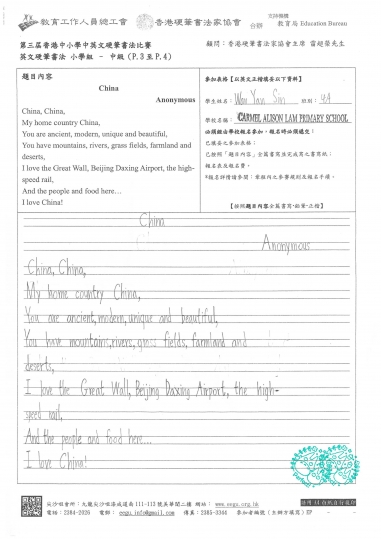 教育工作人員總工會 香港硬筆書法家協會 合辦 支持機構 教育局 Education Bureau
第三屆香港中小學中英文硬筆書法比賽
顧問：香港硬筆書法家協會主席
英文硬筆書法 小學組 - 中級 (P.3 至 P.4)
題目內容
China
Anonymous
China, China,
My home country China,
You are ancient, modern, unique and beautiful,
You have mountains, rivers, grass fields, farmland and
deserts,
I love the Great Wall, Beijing Daxing Airport, the high-
speed rail,
And the people and food here…
I love China!
參加表格【以英文正楷填妥以下資料】
學生姓名： Yan Sin 班別：4A
學校名稱：CARMEL ALISON LAM PRIMARY SCHOOL
必須經由學校報名參加，報名時必須遞交：
已填妥之參加表格；
報名表及報名費。
【按照題目內容全篇書寫-鉛筆-正楷】
China
Anonymous
China, China,
My home country China,
You are ancient, modern, unique and beautiful,
You have mountains, rivers, grass fields, farmland and
deserts,
I love the Great Wall, Beijing Daxing Airport, the high-
speed rail,
And the people and food here...
I love China!
尖沙咀會所：九龍尖沙咀漆咸道南 111-113 號 網站： www.eegu.org.hk
電話：2384-2026 電郵： eegu.info@gmail.com 傳真：2385-3344 參加者編號（主辦方填寫）EP -